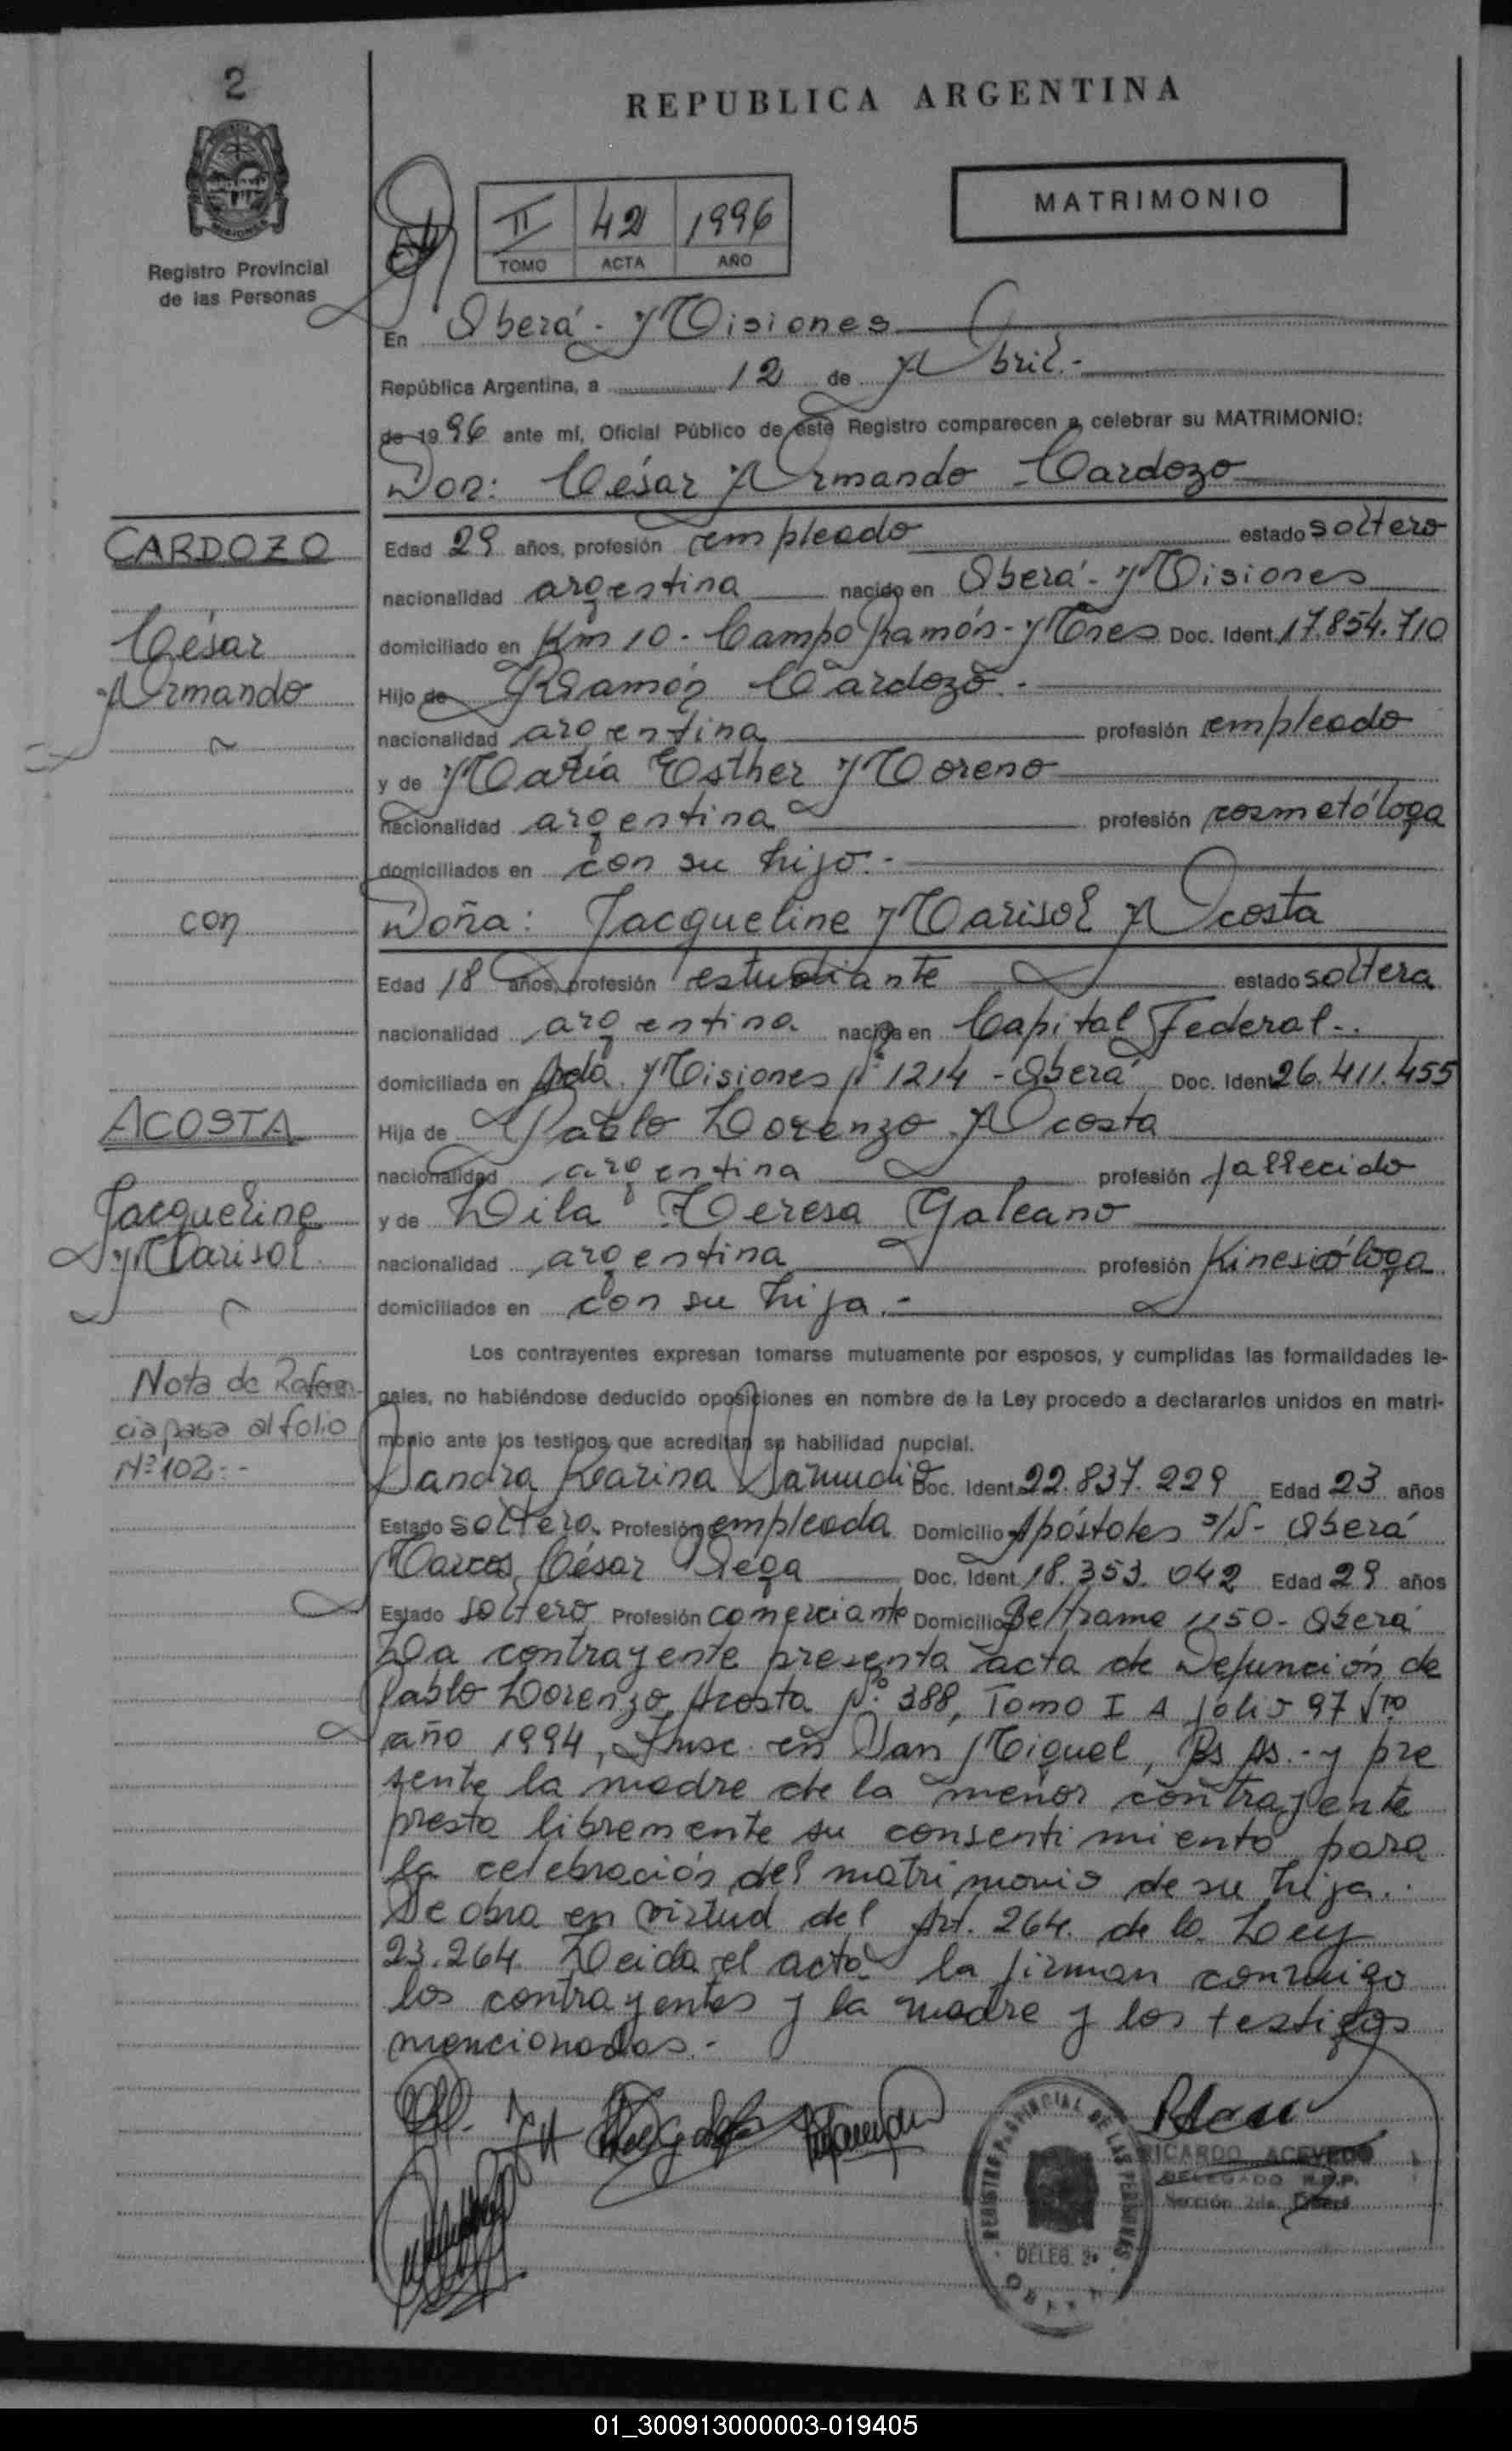 2
REPUBLICA ARGENTINA
MATRIMONIO
II 42 1996
TOMO ACTA AÑO
Registro Provincial
de las Personas
En Oberá - Misiones
República Argentina, a 12 de Abril.-
de 1996 ante mí, Oficial Público de este Registro comparecen a celebrar su MATRIMONIO:
Don: César Armando Cardozo
CARDOZO
César
Armando
Edad 29 años, profesión empleado estado soltero
nacionalidad argentina nacido en Oberá - Misiones
domiciliado en Km 10 - Campo Ramón - Mnes Doc. Ident. 17.854.710
Hijo de Ramón Cardozo.-
nacionalidad argentina profesión empleado
y de María Esther Moreno
nacionalidad argentina profesión cosmetóloga
domiciliados en con su hijo.-
con
Doña: Jacqueline Marisol Acosta
Edad 18 años, profesión estudiante estado soltera
nacionalidad argentina nacida en Capital Federal.-
domiciliada en Avda. Misiones Nº 1214 - Oberá Doc. Ident. 26.411.455
ACOSTA
Jacqueline
Marisol
Hija de Pablo Lorenzo Acosta
nacionalidad argentina profesión fallecido
y de Lila Teresa Galeano
nacionalidad argentina profesión Kinesióloga
domiciliados en con su hija.-
Nota de Referen-
cia pasa al folio
Nº 102.-
Los contrayentes expresan tomarse mutuamente por esposos, y cumplidas las formalidades le-
gales, no habiéndose deducido oposiciones en nombre de la Ley procedo a declararlos unidos en matri-
monio ante los testigos que acreditan su habilidad nupcial.
Sandra Karina Doc. Ident. 22.837.229 Edad 23 años
Estado soltera Profesión empleada Domicilio Apóstoles s/N - Oberá
Marcos César Doc. Ident. 18.353.042 Edad 29 años
Estado soltero Profesión comerciante Domicilio Beltrame 1150 - Oberá
La contrayente presenta acta de Defunción de
Pablo Lorenzo Acosta Nº 388, Tomo I A folio 97 Vto
año 1994, Insc. en San Miguel, Bs As.- y pre
sente la madre de la menor contrayente
presta libremente su consentimiento para
la celebración del matrimonio de su hija.
Se obra en virtud del Art. 264. de la Ley
23.264. Leida el acta la firman conmigo
los contrayentes y la madre y los testigos
mencionados.-
REGISTRO PROVINCIAL DE LAS PERSONAS
DELEG. 2a
OBERA
RICARDO ACEVEDO
DELEGADO R.P.P.
Sección 2da. Oberá
01_300913000003-019405